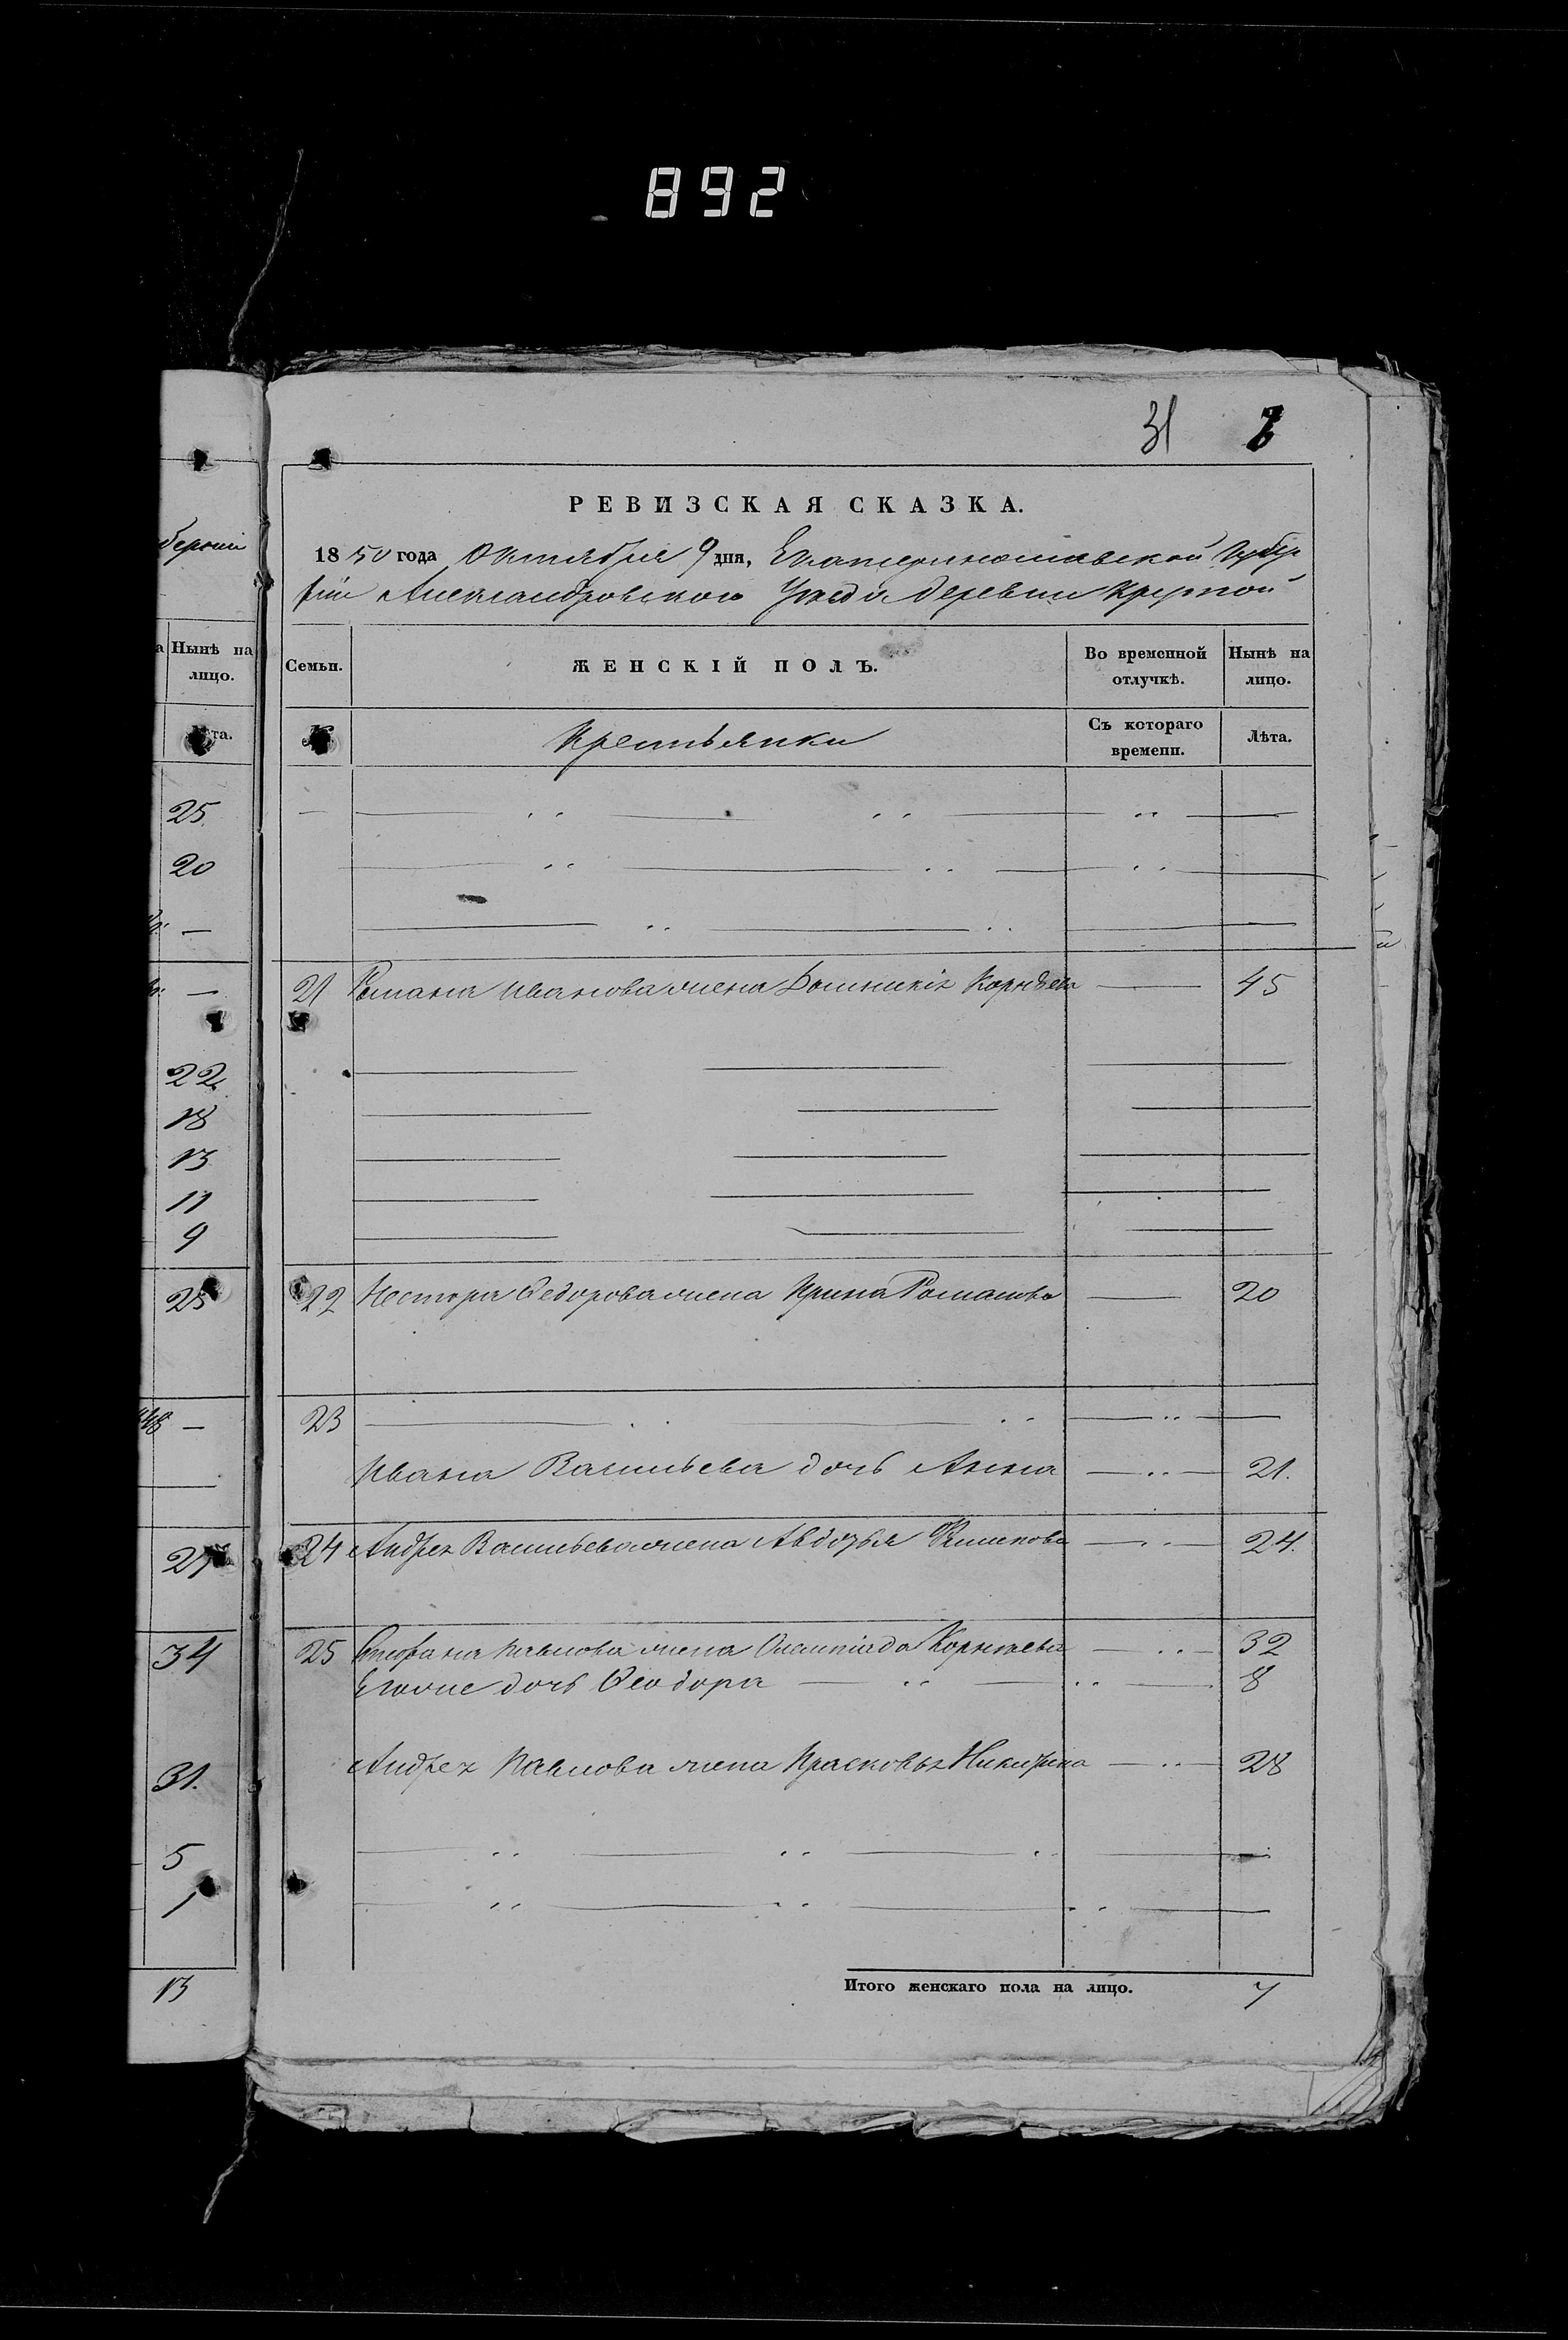 892
31
РЕВИЗСКАЯ СКАЗКА.
берніи
1850 года Октября 9 дня, Екатеринославской Губер
ніи Александровского Уезда деревни Крутой
Нынѣ на лицо.
Семьи. ЖЕНСКІЙ ПОЛЪ. Во временной отлучкѣ. Нынѣ на лицо.
№. Крестьянки Съ котораго времени. Лѣта.
25
20
21 Романа Иванова жена Домникія Корнѣева — 45
22
18
13
11
9
25 22 Нестора Федорова жена Ирина Романова — 20
23
Ивана Васильева дочь Анна — 21.
27 24 Андрея Васильева жена Авдотья — 24.
34 25 Стефана Павлова жена Олемпіада Корнѣева — 32
Егоже дочь Феодора — 8
31. Андрея Павлова жена Прасковья Никифирова — 28
5
1
13 Итого женскаго пола на лицо. 7